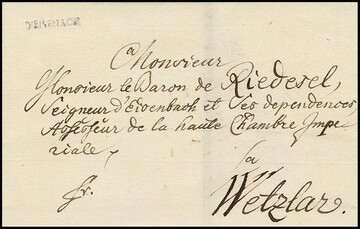 D'EISENACH
a Monsieur
Monsieur le Baron de Riedesel,
Seigneur d'Eisenbach et Ses dependences
Assesseur de la haute Chambre Impe
riale,
a
fr.
Wetzlar.